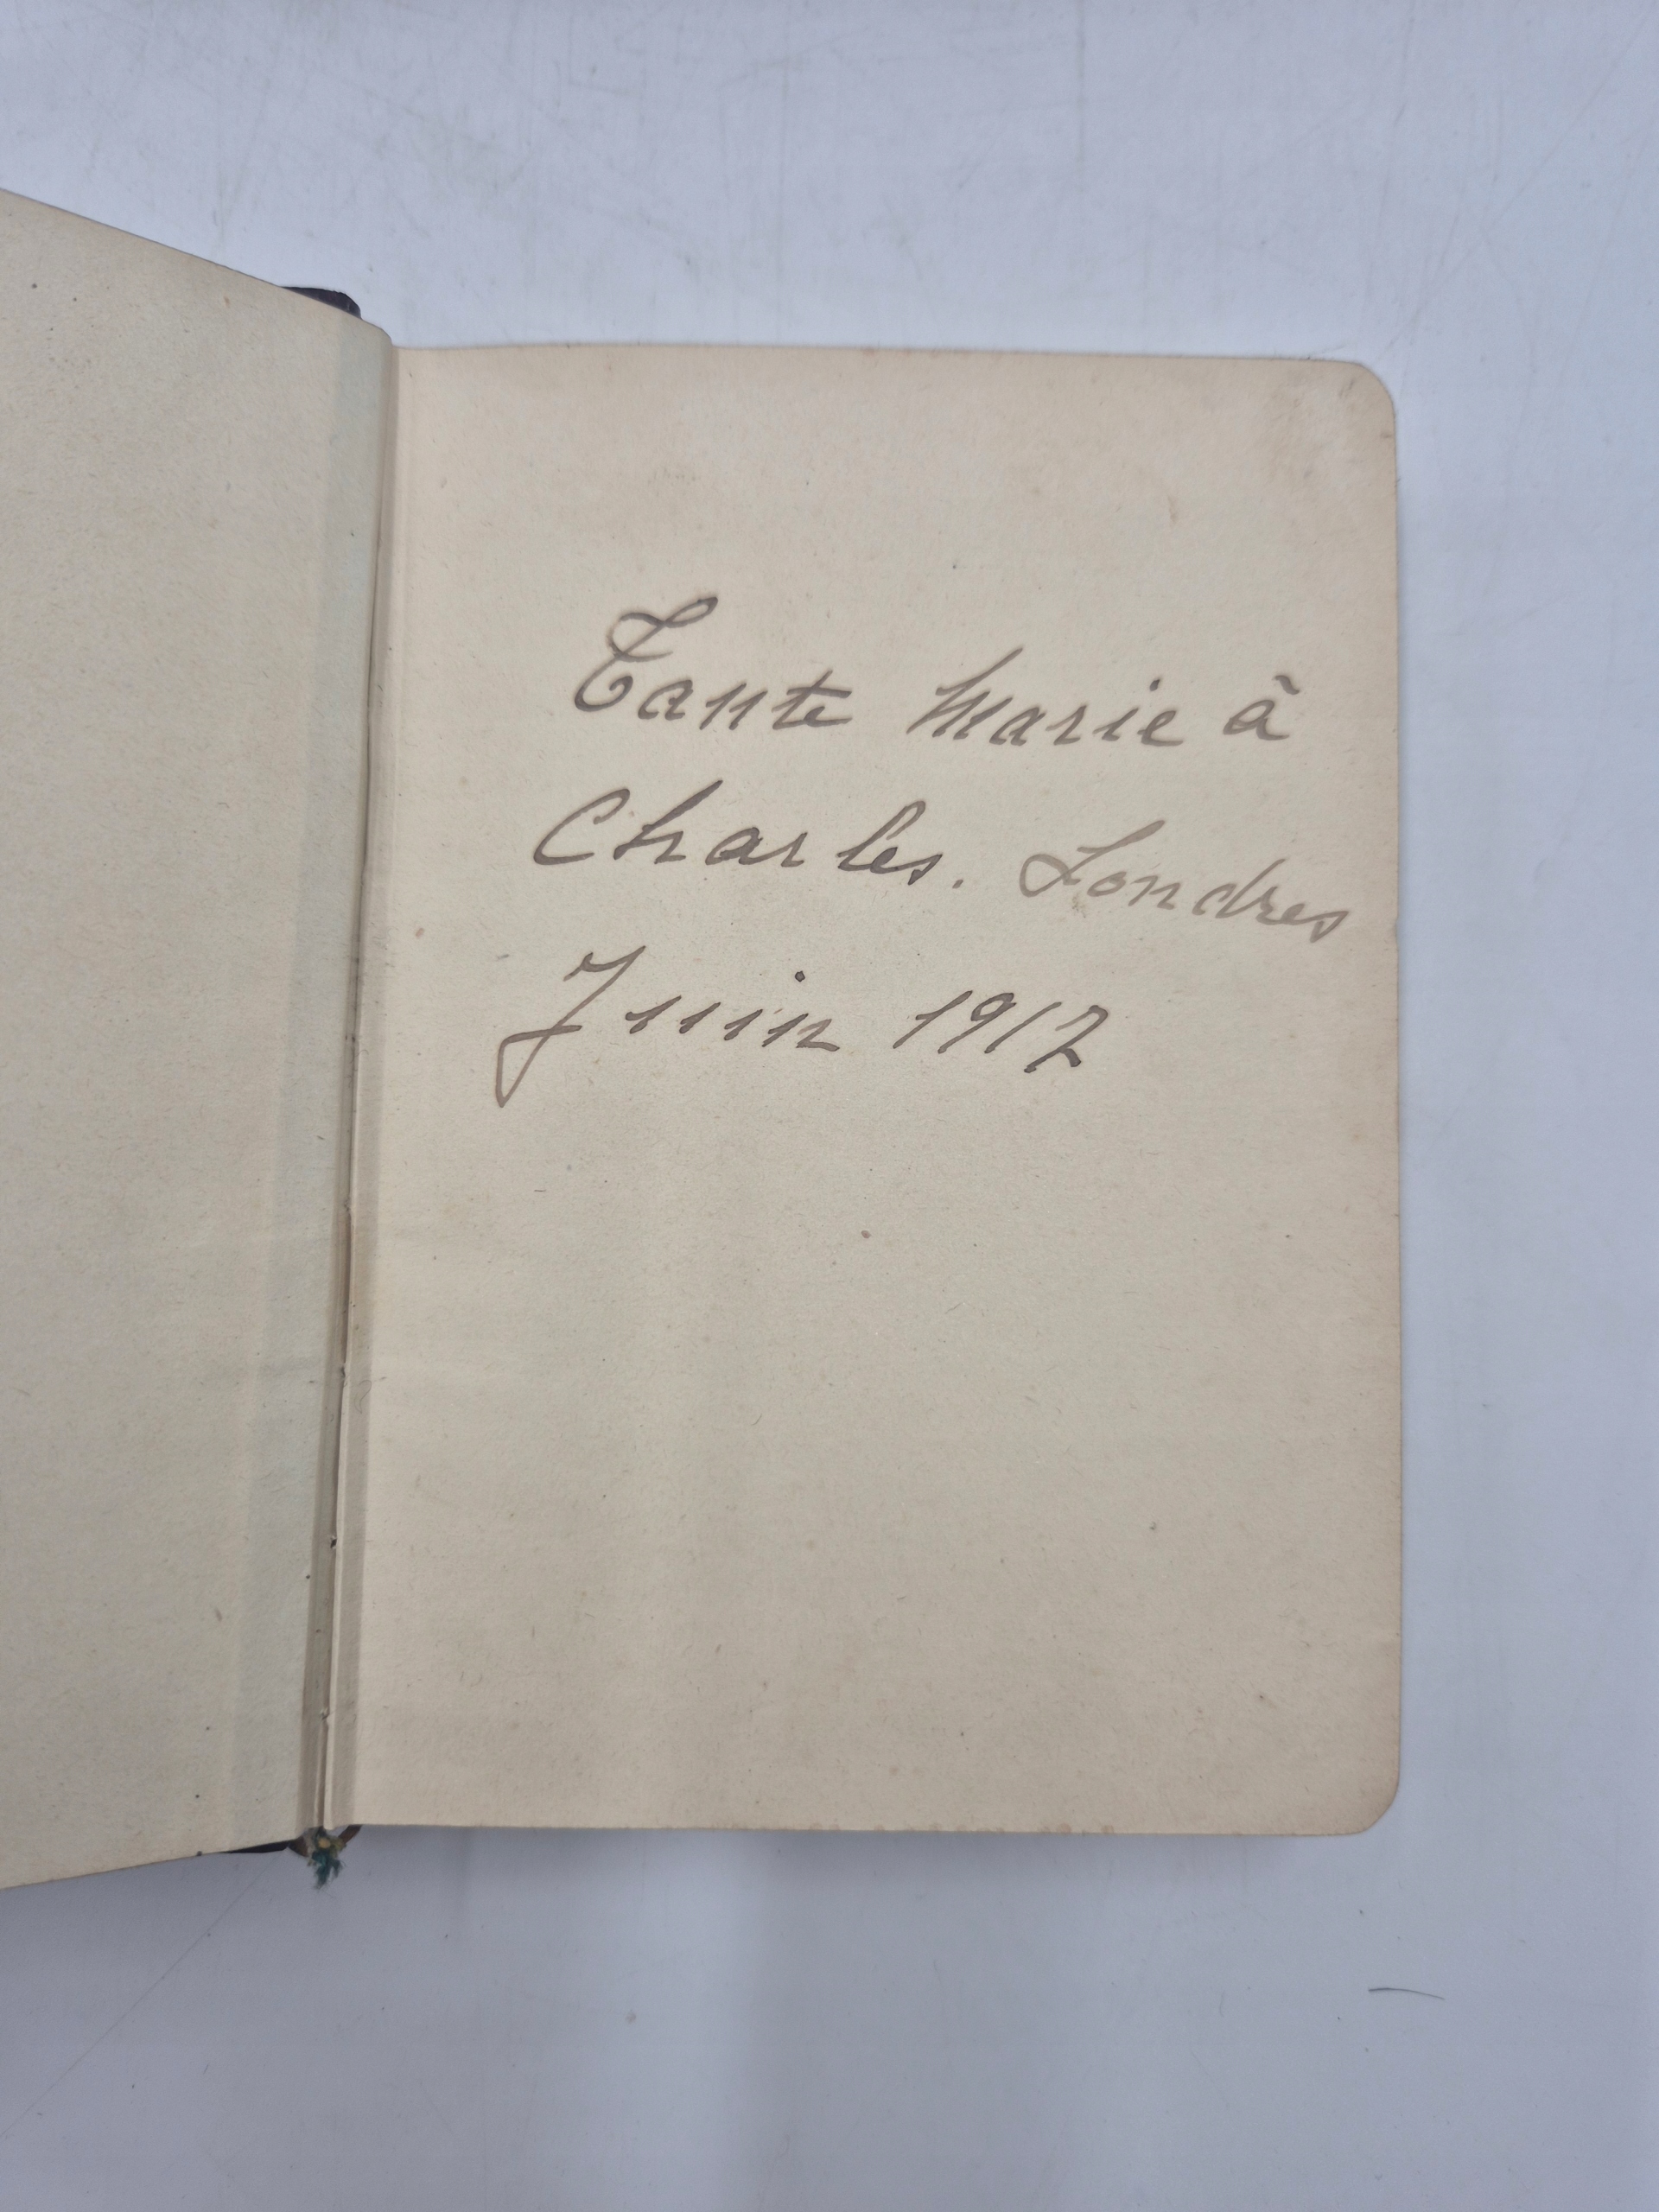 Tante Marie à
Charles. Londres
Juin 1912